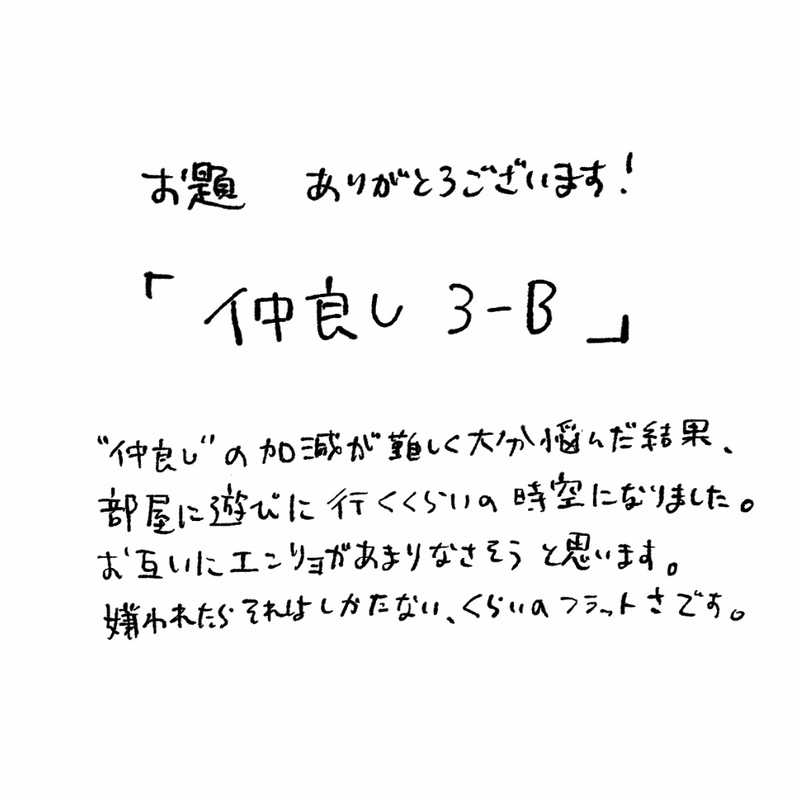 お題　ありがとうございます!
「仲良し 3-B」
“仲良し”の加減が難しく大分悩んだ結果、
部屋に遊びに行くくらいの時空になりました。
お互いにエンリョがあまりなさそうと思います。
嫌われたらそれはしかたない、くらいのフラットさです。